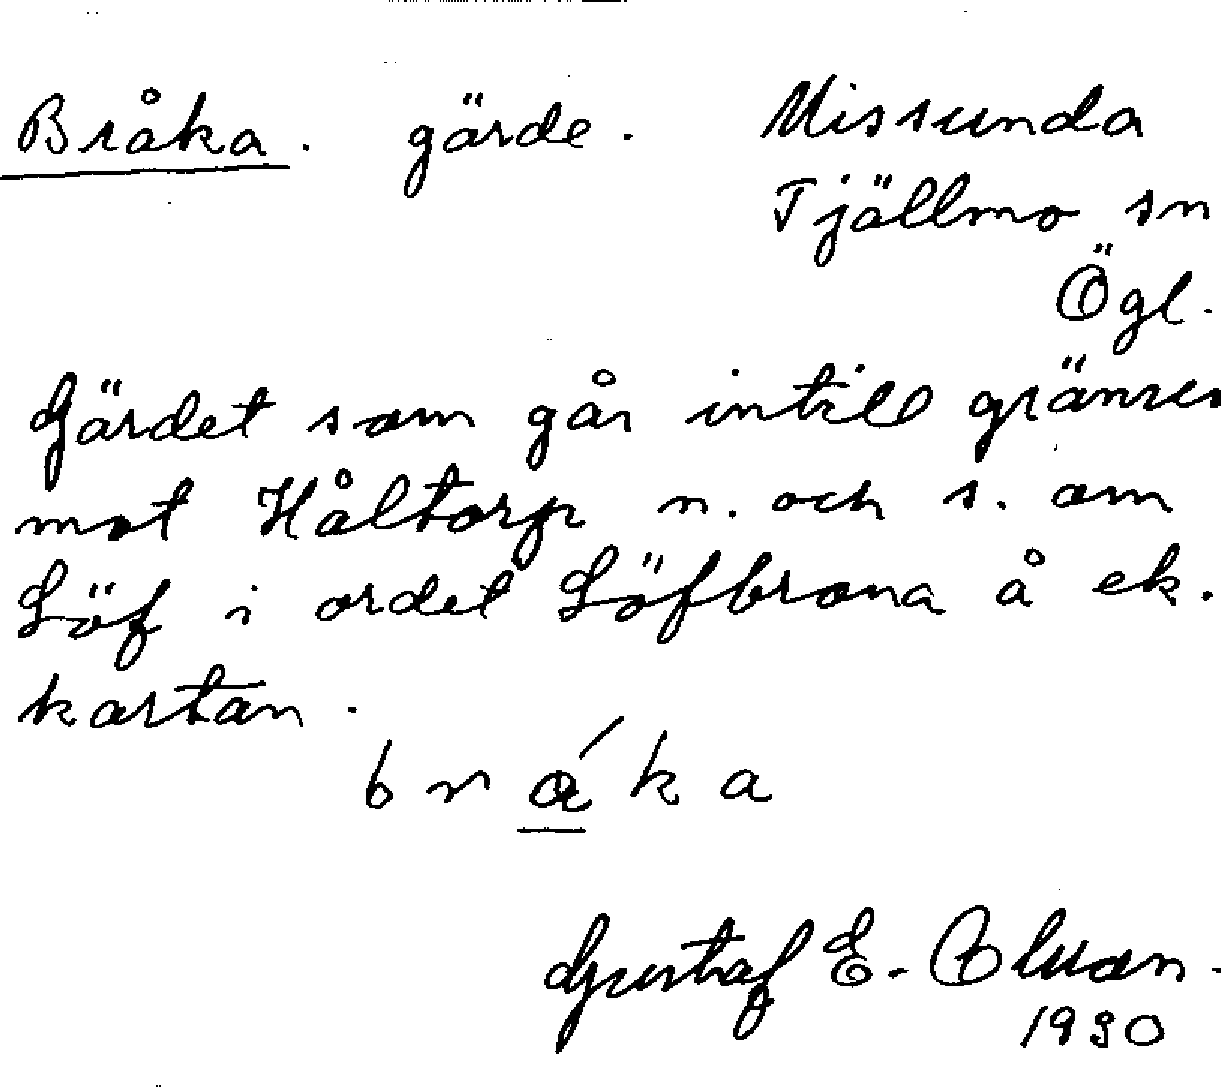 Bråka. gärde. Missunda
Tjällmo sn
Ögl.
Gärdet som går intill gränsen
mot Håltorp n. och s. om
Löf i ordet Löfbrona å ek.
kartan.
b r á k a
Gustaf E.
1930